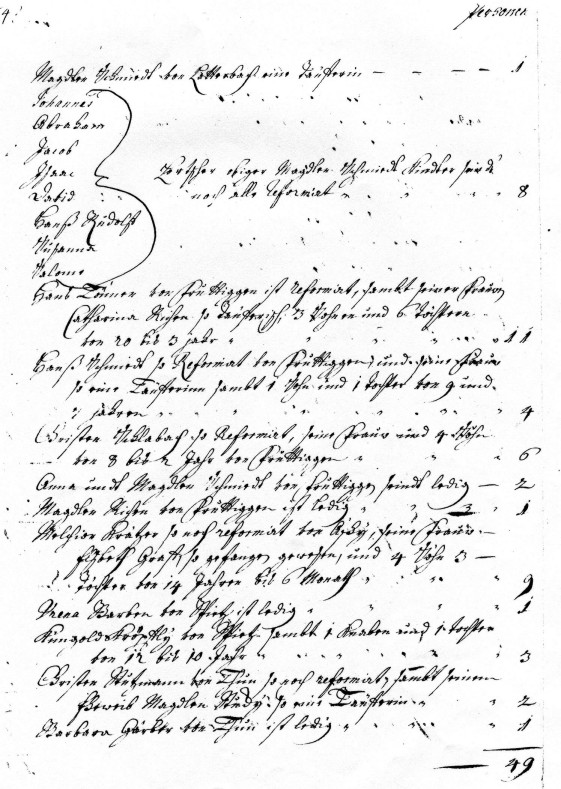 4. Personen
Magdlen Schmidt von Latterbach eine Täufferin — — — — 1
Johannes
Abraham
Jacob
Isaac
Zürcher obiger Magdlen Schmidt Kinder seind
David noch alle Reformirt 8
Hanß Rudolff
Susanna
Salome
Hans Tönnen von Fruttiggen ist Reformirt, sambt seiner Frauw
Catharina Risen so Täufferisch, 3 Söhnen und 6 Töchtern
von 20 bis 3 Jahr 11
Hanß Schmid so Reformirt von Fruttiggen, und seine Frauw
so eine Täufferinn sambt 1 Sohn und 1 Tochter von 9 und
Jahren 4
Christen Schlabach so Reformirt, seine Frauw und 4 Söhn
von 8 bis Jahr von Fruttiggen 6
Anna undt Magdlen Schmid von Fruttiggen seindt ledig — 2
Magdlen Risen von Fruttiggen ist ledig 1
Melchior Kratzer so noch reformirt von Äschy, seine Frauw —
Elßbeth Graff, so gefangen gewesen, und 4 Söhn 3 —
Töchter von 14 Jahren bis 6 Monath 9
Vrena Barben von Spiez ist ledig 1
Küngold von Spiez sambt 1 Knaben und 1 Tochter
von 12 bis 10 Jahr 3
Christen Stutzmann von Thun so noch reformirt, sambt seinem
Eheweib Magdlen Study so eine Täufferin 2
Barbara Gärber von Thun ist ledig 1
— 49